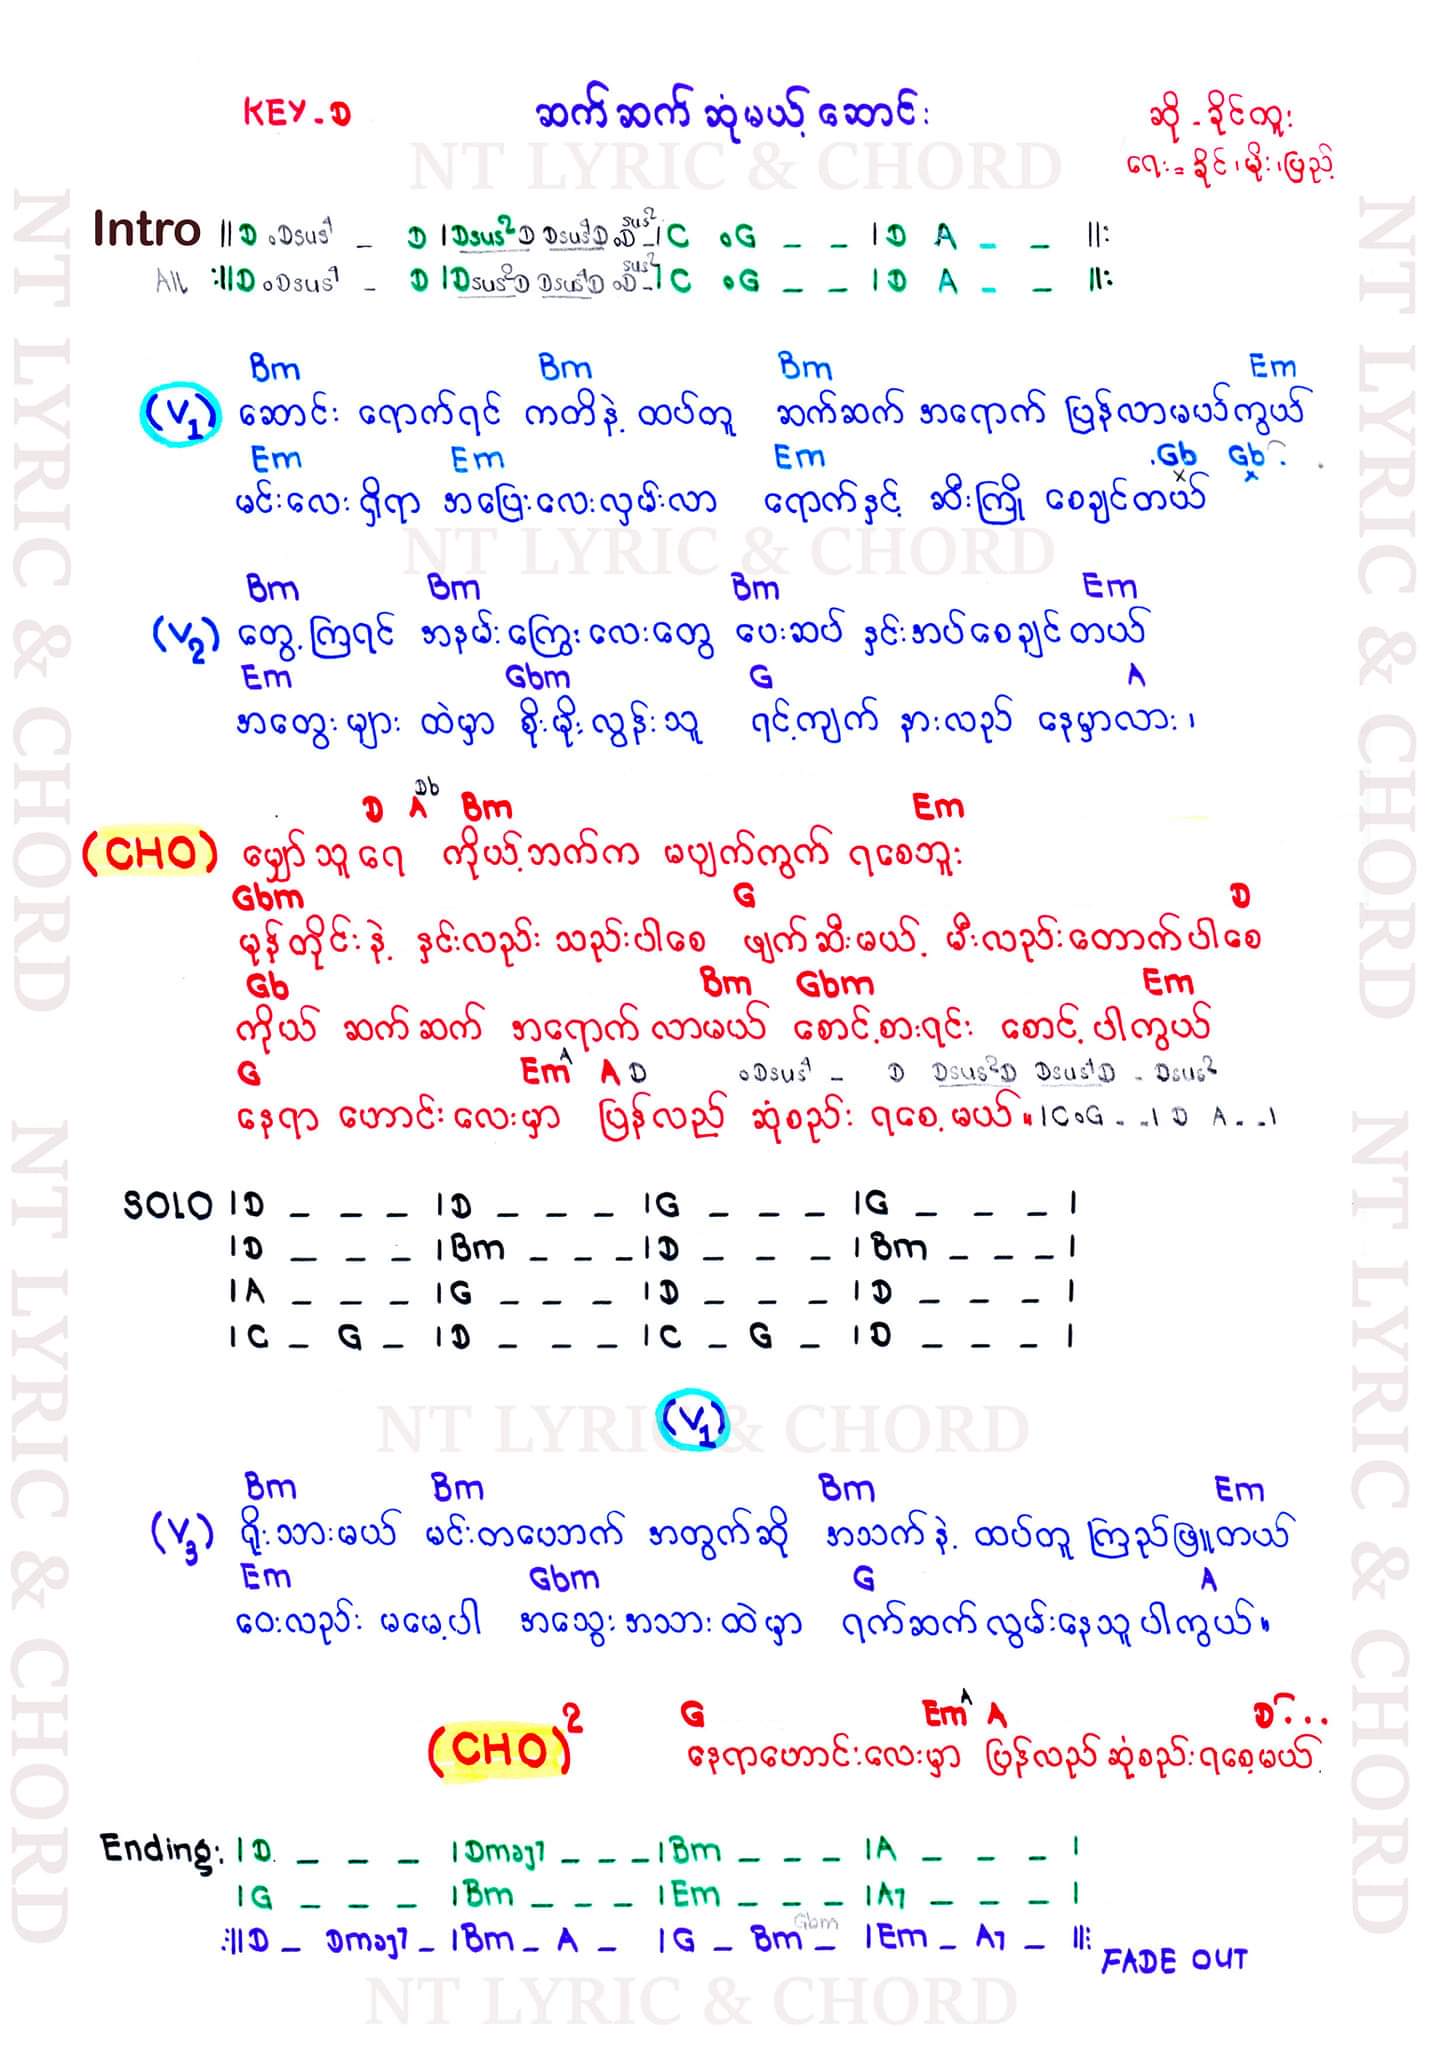 KEY-D
ဆက်ဆက်ဆုံမယ့်ဆောင်း
ဆို - ခိုင်ထူး
ရေး = ခိုင်၊မိုး၊ပြည့်
NT LYRIC & CHORD
Intro ||D oDsus4 _ D |Dsus2D Dsus4D oD sus2 _|C oG _ _ |D A _ _ ||:
All :||D oDsus4 _ D |Dsus2D Dsus4D oD sus2 _|C oG _ _ |D A _ _ ||:
Bm Bm Bm Em
(V1) ဆောင်း ရောက်ရင် ကတိနဲ့ ထပ်တူ ဆက်ဆက် အရောက် ပြန်လာမယ်ကွယ်
Em Em Em Gb Gb
မင်းလေး ရှိရာ အပြေးလေးလှမ်းလာ ရောက်နှင့် ဆီးကြို စေချင်တယ်
NT LYRIC & CHORD
Bm Bm Bm Em
(V2) တွေ့ကြရင် အနမ်းကြွေးလေးတွေ ပေးဆပ် နှင်းအပ်စေချင်တယ်
Em Gbm G A
အတွေးများ ထဲမှာ စိုးမိုးလွန်းသူ ရင့်ကျက် နားလည် နေမှာလား၊
D A Db Bm Em
(CHO) မျှော်သူရေ ကိုယ့်ဘက်က မပျက်ကွက် ရစေဘူး
Gbm G D
မုန်တိုင်းနဲ့ နှင်းလည်း သည်းပါစေ ဖျက်ဆီးမယ့် မီးလည်းတောက်ပါစေ
Gb Bm Gbm Em
ကိုယ် ဆက်ဆက် အရောက်လာမယ် စောင့်စားရင်း စောင့်ပါကွယ်
G Em A A D oDsus4 _ D Dsus2D Dsus4D - Dsus2
နေရာ ဟောင်းလေးမှာ ပြန်လည် ဆုံစည်း ရစေ့မယ်။ |CoG - - | D A - - |
SOLO |D _ _ _ |D _ _ _ |G _ _ _ |G _ _ _ |
|D _ _ _ |Bm _ _ _ |D _ _ _ |Bm _ _ _ |
|A _ _ _ |G _ _ _ |D _ _ _ |D _ _ _ |
|C _ G _ |D _ _ _ |C _ G _ |D _ _ _ |
(V1)
NT LYRIC & CHORD
Bm Bm Bm Em
(V3) ရိုးသားမယ် မင်းတပေဘက် အတွက်ဆို အသက်နဲ့ ထပ်တူ ကြည်ဖြူတယ်
Em Gbm G A
ဝေးလည်း မမေ့ပါ အသွေးအသားထဲမှာ ရက်ဆက်လွမ်းနေသူပါကွယ်။
G Em A A D...
(CHO)2 နေရာဟောင်းလေးမှာ ပြန်လည်ဆုံစည်းရစေ့မယ်
Ending: |D _ _ _ |Dmaj7 _ _ _ |Bm _ _ _ |A _ _ _ |
|G _ _ _ |Bm _ _ _ |Em _ _ _ |A7 _ _ _ |
:||D _ Dmaj7 _ |Bm _ A _ |G _ Bm Gbm _ |Em _ A7 _ ||:
FADE OUT
NT LYRIC & CHORD
NT LYRIC & CHORD
NT LYRIC & CHORD
NT LYRIC & CHORD
NT LYRIC & CHORD